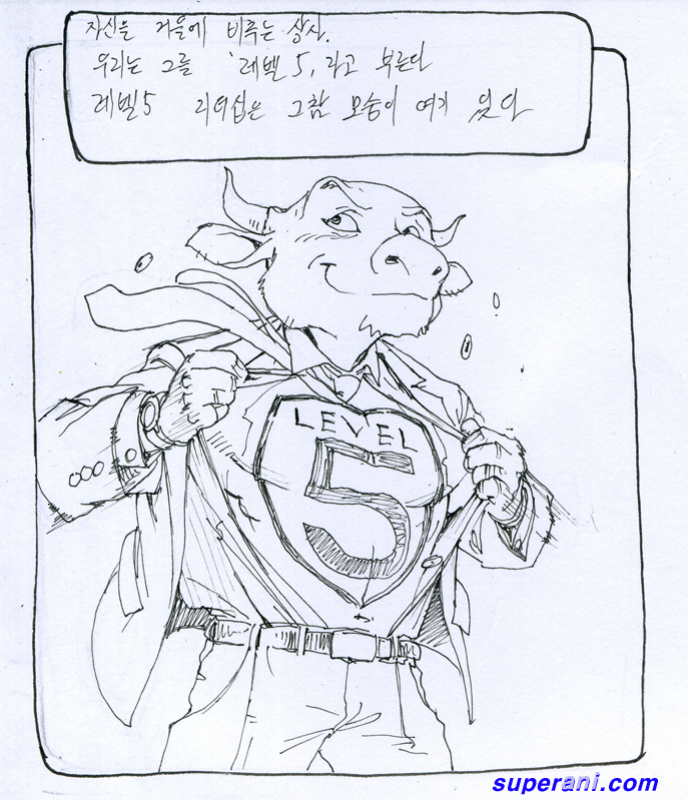 자신을 거울에 비추는 상사.
우리는 그를 '레벨 5, 라고 부른다
레벨5 리더쉽은 그참 모습이 여기 있다
LEVEL
5
superani.com